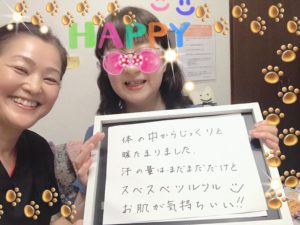 HAPPY
体の中からじっくりと
暖たまりました。
汗の量はまだまだだけど
スベスベツルツル
お肌が気持ちいい!!